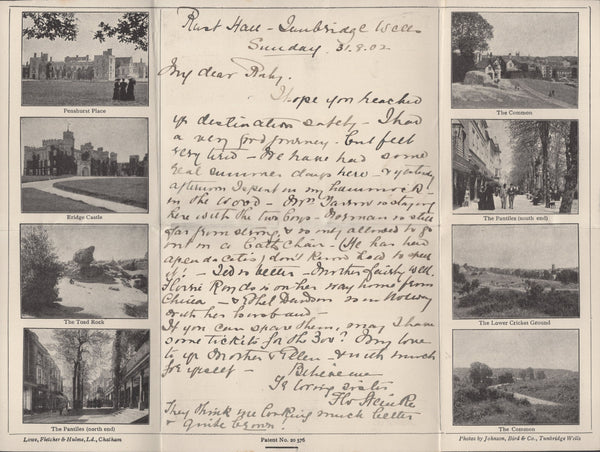 Rust Hall - Tunbridge Wells
Sunday. 31.8.02
My dear Ruby.
I hope you reached
yr destination safely - I had
a very good journey. but felt
very tired - We have had some
real summer days here - & yesterday
afternoon I spent in my hammock -
in the wood - Mrs is staying
here with the two boys - Norman is still
far from strong, & is only allowed to go
out in a Bath Chair! (He has had
I don't know how to spell
it! - Ted is better - Mother fairly well.
Florrie is on her way home from
China - & Ethel is in Norway
with her husband -
If you can spare them, may I have
some tickets for the Zoo? My love
to yr Mother & Ellen - & with much
for yrself - Believe me
Yr loving sister
Flo
They think you looking much better
& quite brown!
Penshurst Place
Bridge Castle
The Toad Rock
The Pantiles (north end)
Lowe, Fletcher & Hulme, Ld., Chatham
Patent No. 20 576
The Common
The Pantiles (south end)
The Lower Cricket Ground
The Common
Photos by Johnson, Bird & Co., Tunbridge Wells